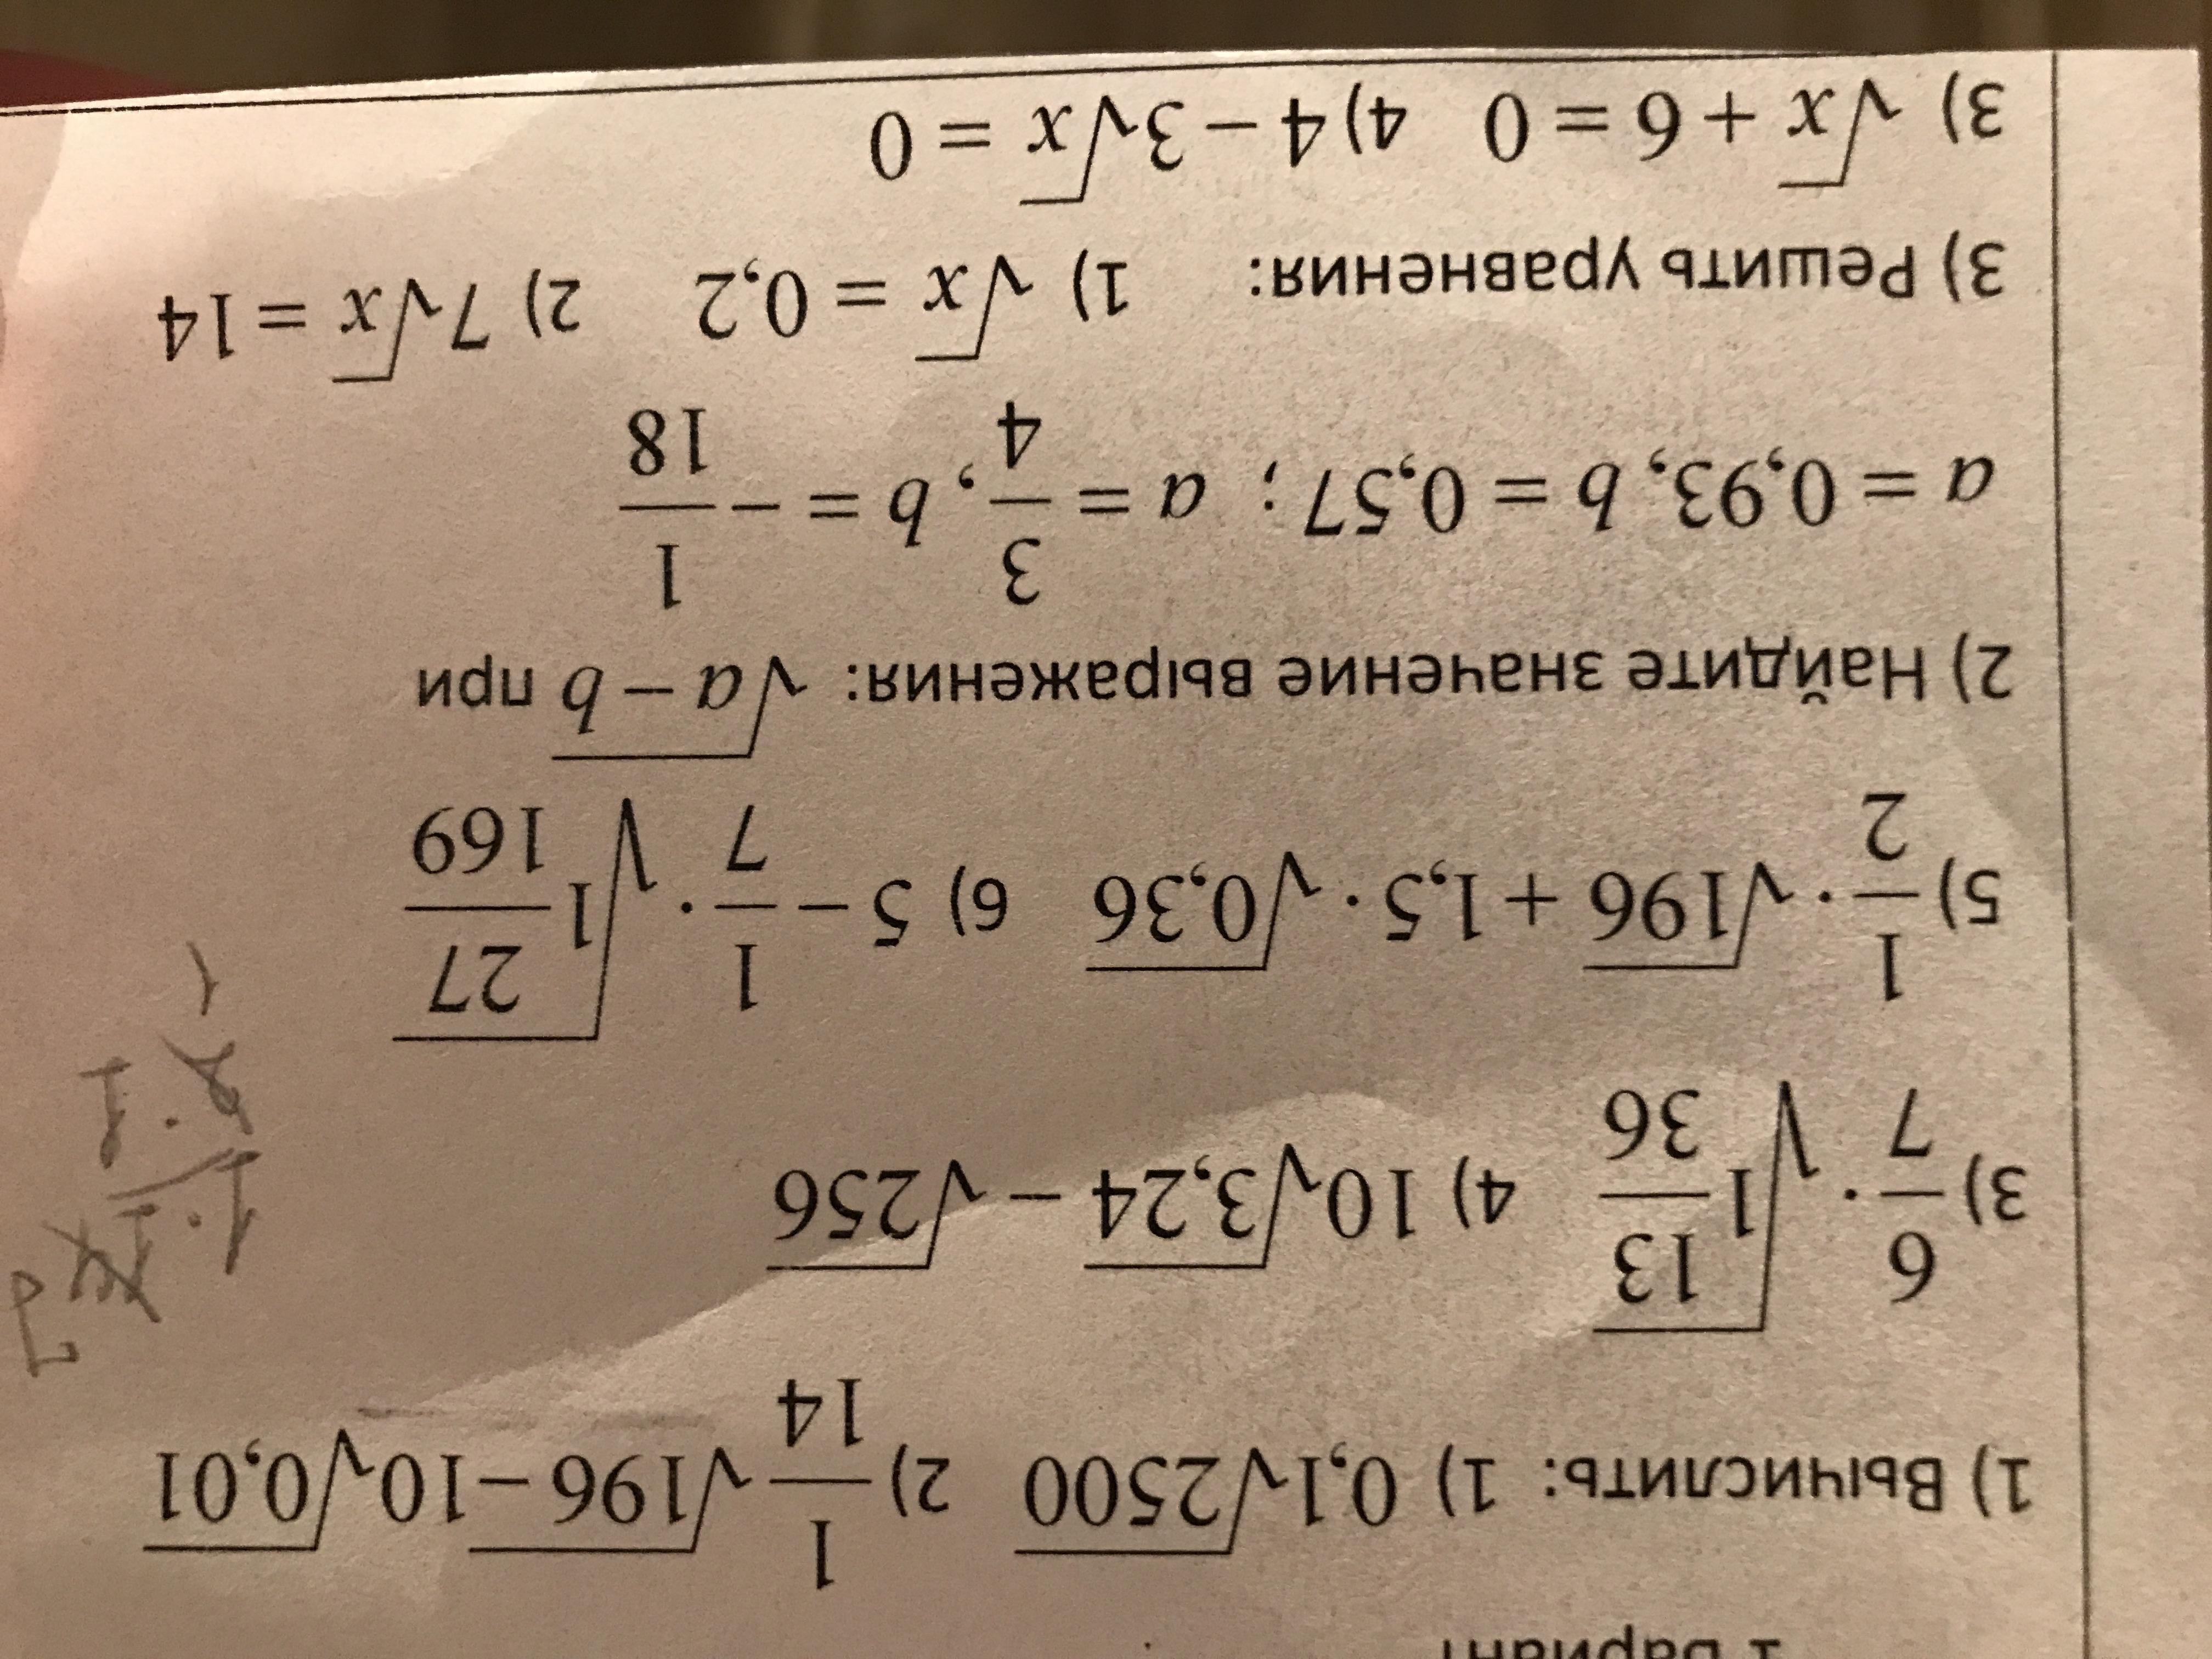 1 Вариант
1) Вычислить: 1) 0,1√2500 2) 1/14 √196 − 10√0,01
3) 6/7 · √(1 13/36) 4) 10√3,24 − √256
5) 1/2 · √196 + 1,5 · √0,36 6) 5 − 1/7 · √(1 27/169)
2) Найдите значение выражения: √(a − b) при
a = 0,93, b = 0,57 ; a = 3/4, b = − 1/18
3) Решить уравнения: 1) √x = 0,2 2) 7√x = 14
3) √x + 6 = 0 4) 4 − 3√x = 0